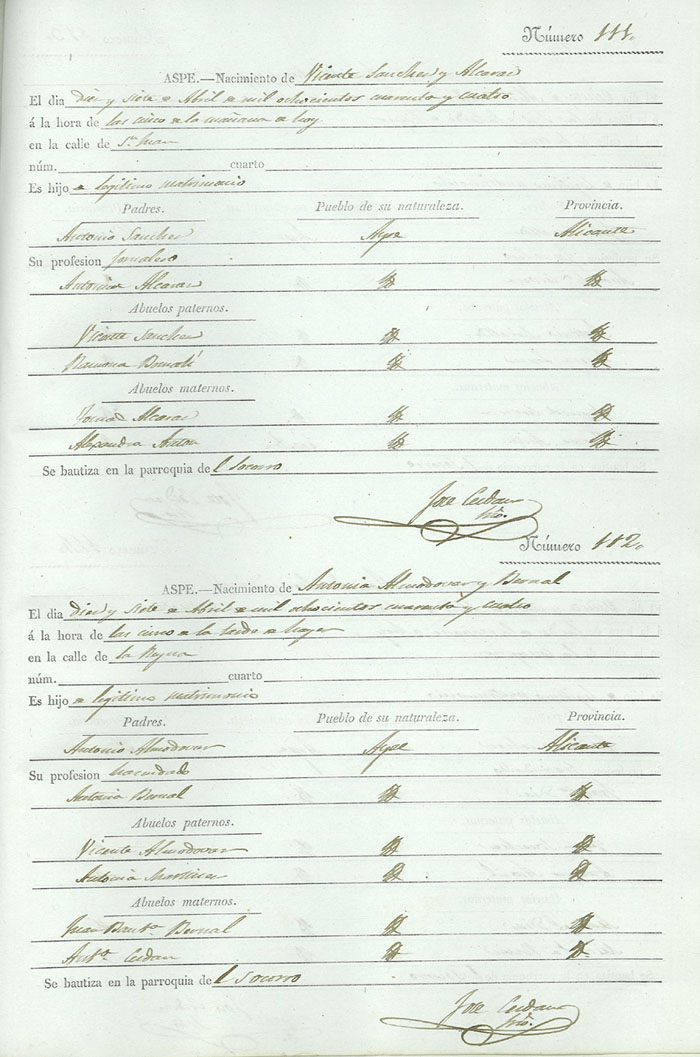 Número 111.
ASPE.—Nacimiento de Vicente Sanchez y Alcaraz
El dia diez y siete de Abril de mil ochocientos cuarenta y cuatro
á la hora de las cinco de la mañana de hoy
en la calle de Sn Juan
núm. cuarto
Es hijo de legitimo matrimonio
Padres. Pueblo de su naturaleza. Provincia.
Antonio Sanchez Aspe Alicante
Su profesion Jornalero
Antonia Alcaraz
Abuelos paternos.
Vicente Sanchez
Ramona
Abuelos maternos.
Alcaraz
Alexandra Anton
Se bautiza en la parroquia del Socorro
Jose Cerdan
Srio.
Número 112.
ASPE.—Nacimiento de Antonia Almodovar y Bernal
El dia diez y siete de Abril de mil ochocientos cuarenta y cuatro
á la hora de las cinco de la tarde de hayer
en la calle de la Reyna
núm. cuarto
Es hijo de legitimo matrimonio
Padres. Pueblo de su naturaleza. Provincia.
Antonio Almodovar Aspe Alicante
Su profesion hacendado
Antonia Bernal
Abuelos paternos.
Vicente Almodovar
Antonia Martinez
Abuelos maternos.
Juan Bauta. Bernal
Anta. Cerdan
Se bautiza en la parroquia del Socorro
Jose Cerdan
Srio.